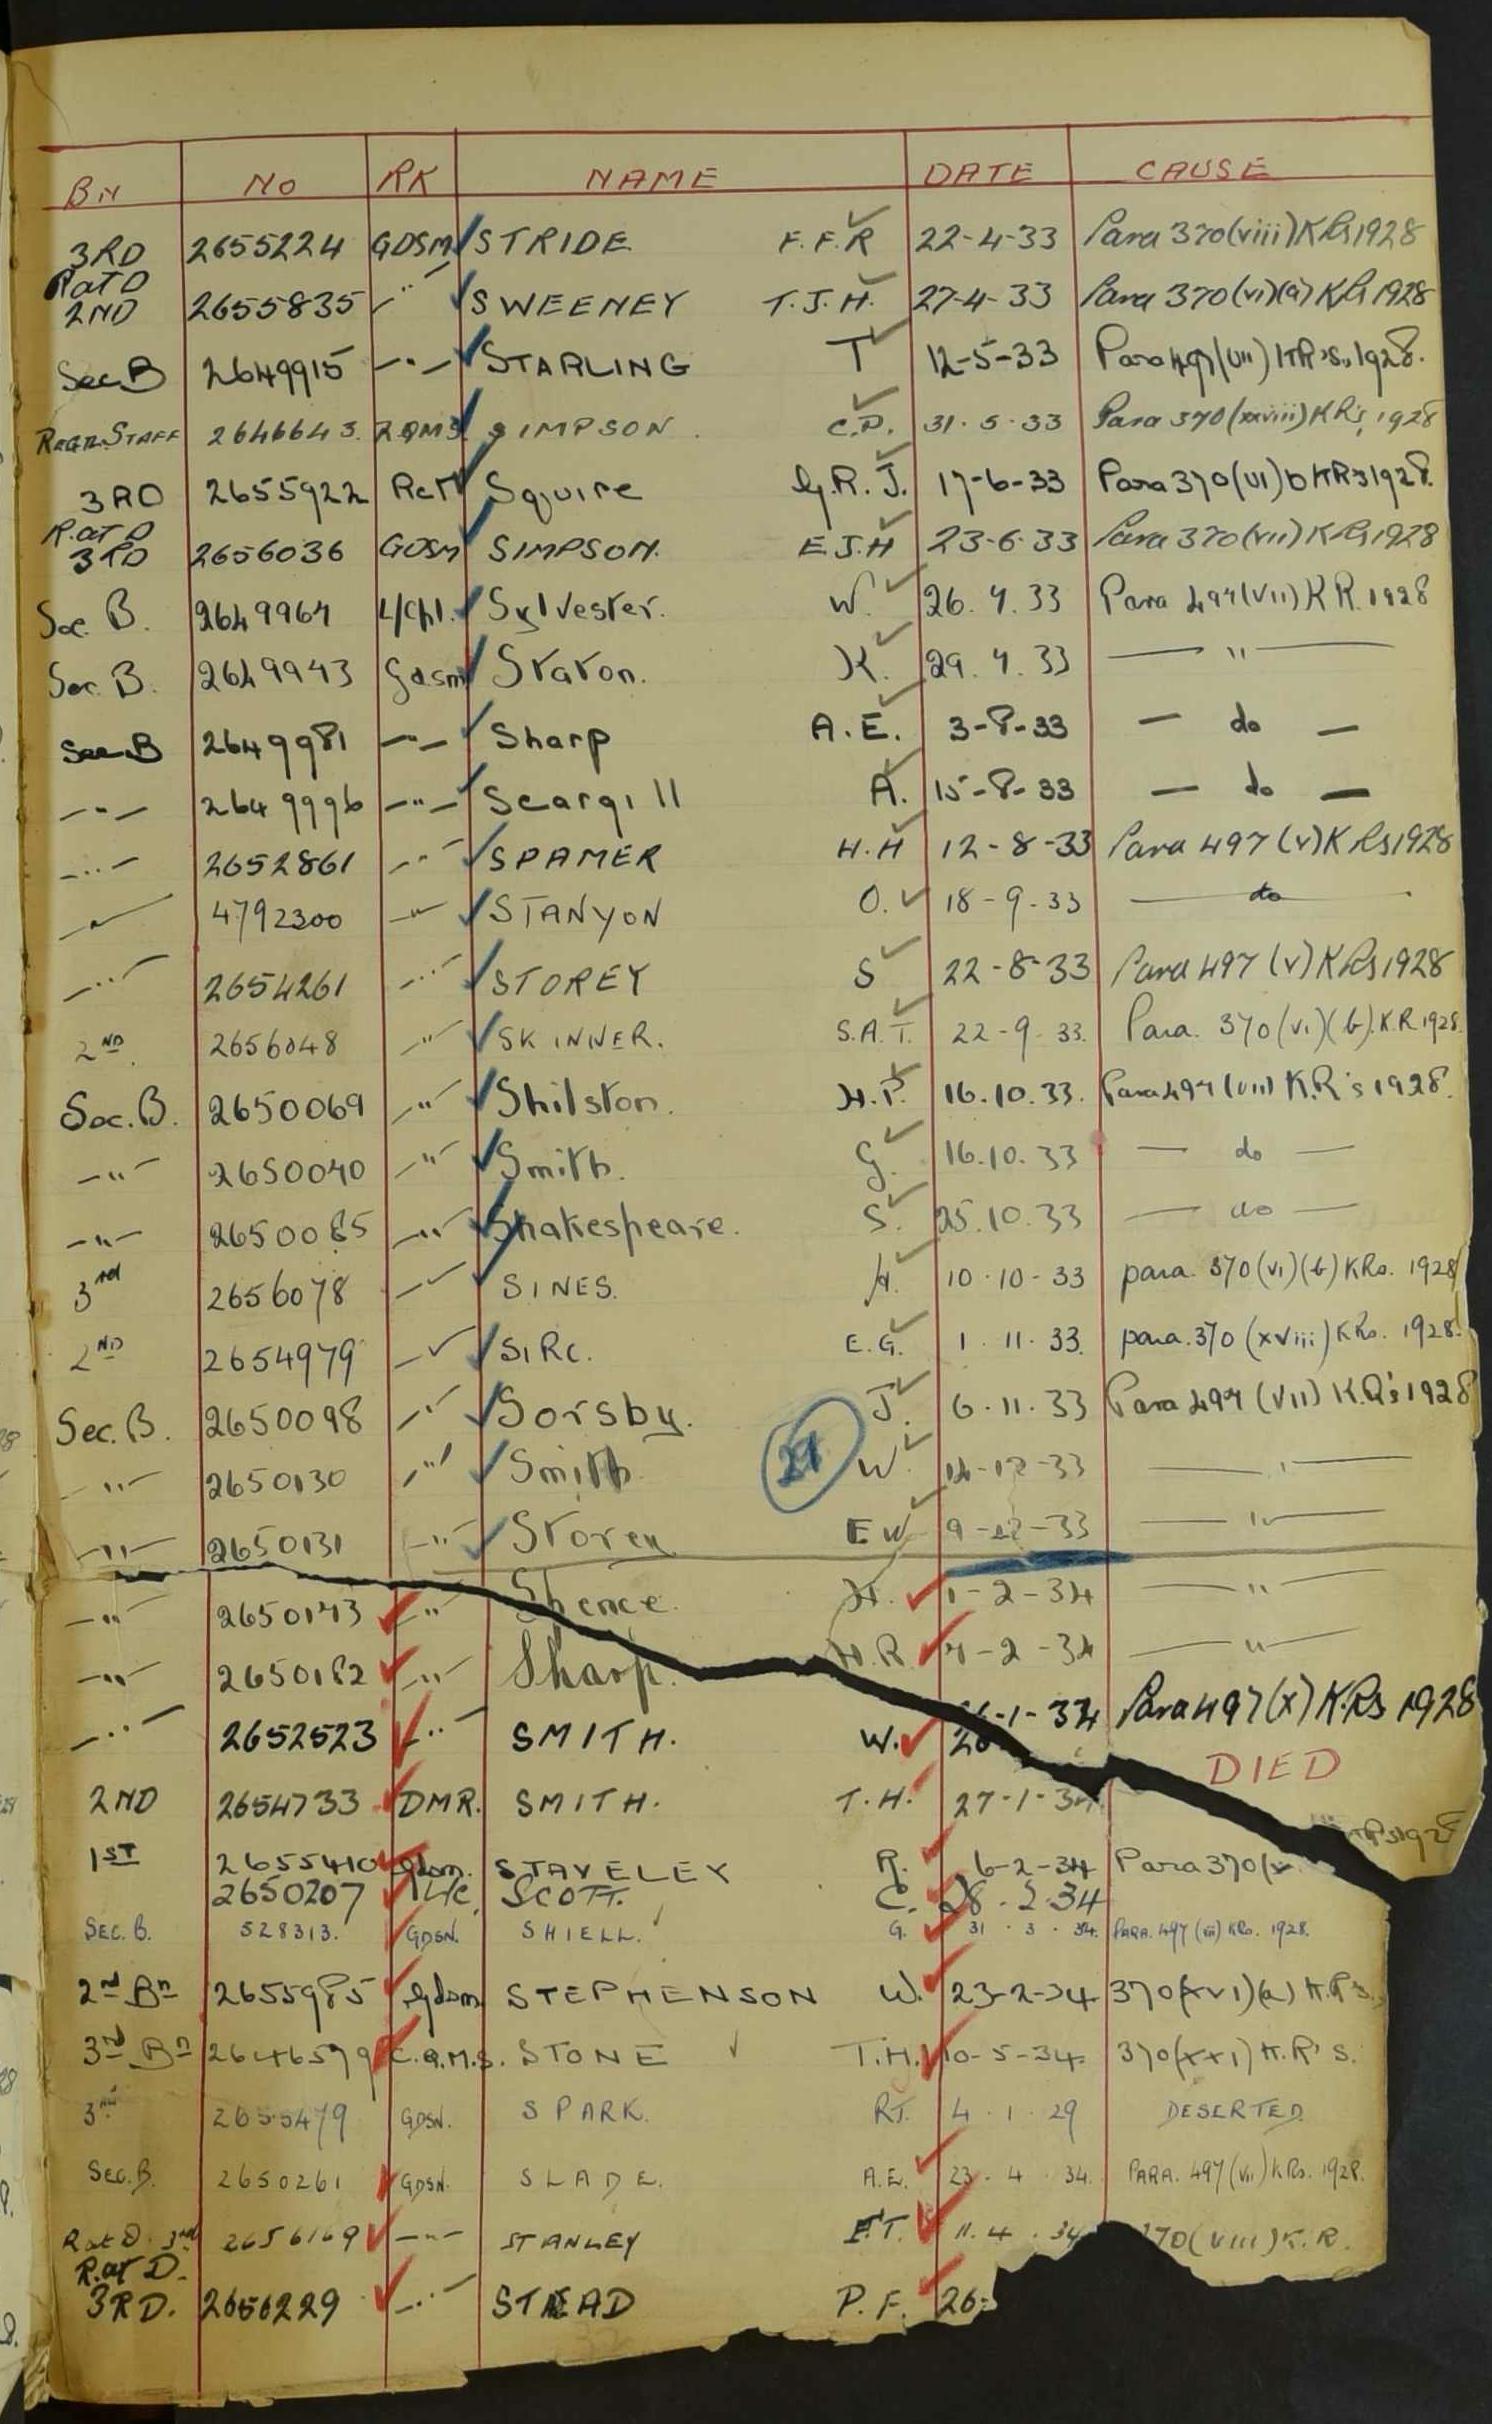 BN NO RK NAME DATE CAUSE
3RD 2655224 GDSM STRIDE F.F.R 22-4-33 Para 370(viii)KRs1928
R at D
2ND 2655835 -"- SWEENEY T.J.H. 27-4-33 Para 370(vi)(a) KRs 1928
Sec B 2649915 -"- STARLING T 12-5-33 Para 497(VII) KR's, 1928.
REGTL. STAFF 2646643. RQMS SIMPSON. C.D. 31.5.33 Para 370(xxviii) KR's, 1928
3RD 2655922 RcT Squire G.R.J. 17-6-33 Para 370(VI)b KRs 1928.
R. at D
3RD 2656036 GDSM SIMPSON. E.J.H 23-6-33 Para 370(vii) KRs1928
Sec. B. 2649964 L/Cpl. Sylvester. W. 26.7.33 Para 497(VII) K R. 1928
Sec. B. 2649943 Gdsm Staton. K. 29.7.33 — " —
Sec B 2649981 -"- Sharp A.E. 3-8-33 — do —
-"- 2649996 -"- Scargill A. 15-8-33 — do —
-"- 2652861 -"- SPAMER H.H 12-8-33 Para 497 (v) K Rs1928
-"- 4792300 -"- STANYON O. 18-9-33 — do —
-"- 2654261 -"- STOREY S 22-8-33 Para 497 (v) K Rs 1928
2ND. 2656048 -"- SKINNER. S.A.T. 22-9-33. Para. 370(vi)(b).K.R 1928.
Sec. B. 2650069 -"- Shilston. H.P. 16.10.33. Para 497 (VII) K.R's 1928.
-"- 2650040 -"- Smith. G. 16.10.33 — do —
-"- 2650085 -"- Shakespeare. S. 25.10.33 — do —
3rd 2656078 -"- SINES. H. 10-10-33 para. 370(vi)(b) KRs. 1928
2ND 2654979 -"- SIRC. E.G. 1.11.33. para.370(xviii) KRs. 1928.
Sec. B. 2650098 -"- Sorsby. J. 6.11.33 Para 497 (VII) K.R's 1928
-"- 2650130 -"- Smith 27 W. -33 — " —
-"- 2650131 -"- Storey E W 9-12-33 — " —
-"- 2650143 -"- Spence. H. 1-2-34 — " —
-"- 2650182 -"- Sharp. H.R. 7-2-34 — " —
-"- 2652523 -"- SMITH. W. 26-1-34 Para 497(x) K.Rs 1928
2ND 2654733 DMR. SMITH. T.H. 27-1-34 DIED
1ST 2655410 Gdsm. STAVELEY R. 6-2-34 Para 370(v KRs1928
2650207 L/c. SCOTT. C. 28.2.34
SEC. B. 528313. GDSN. SHIELL. G. 31.3.34. PARA. 497 (vii) KRs. 1928.
2nd Bn 2655985 Gdsm STEPHENSON W. 23-2-34 370(xvi)(a) K.R's.
3rd Bn 2646579 C.Q.M.S. STONE T.H. 10-5-34 370(xxi) K.R's.
3rd 2655479 GDSN. SPARK. R.T. 4.1.29 DESERTED.
SEC. B. 2650261 GDSN. SLADE. A.E. 23.4.34. PARA. 497(vii) KRs. 1928.
R at D. 3rd 2656169 -"- STANLEY F.T. 11.4.34 370(viii) K.R.
R. at D.
3RD. 2656229 -"- STEAD P.F. 26-